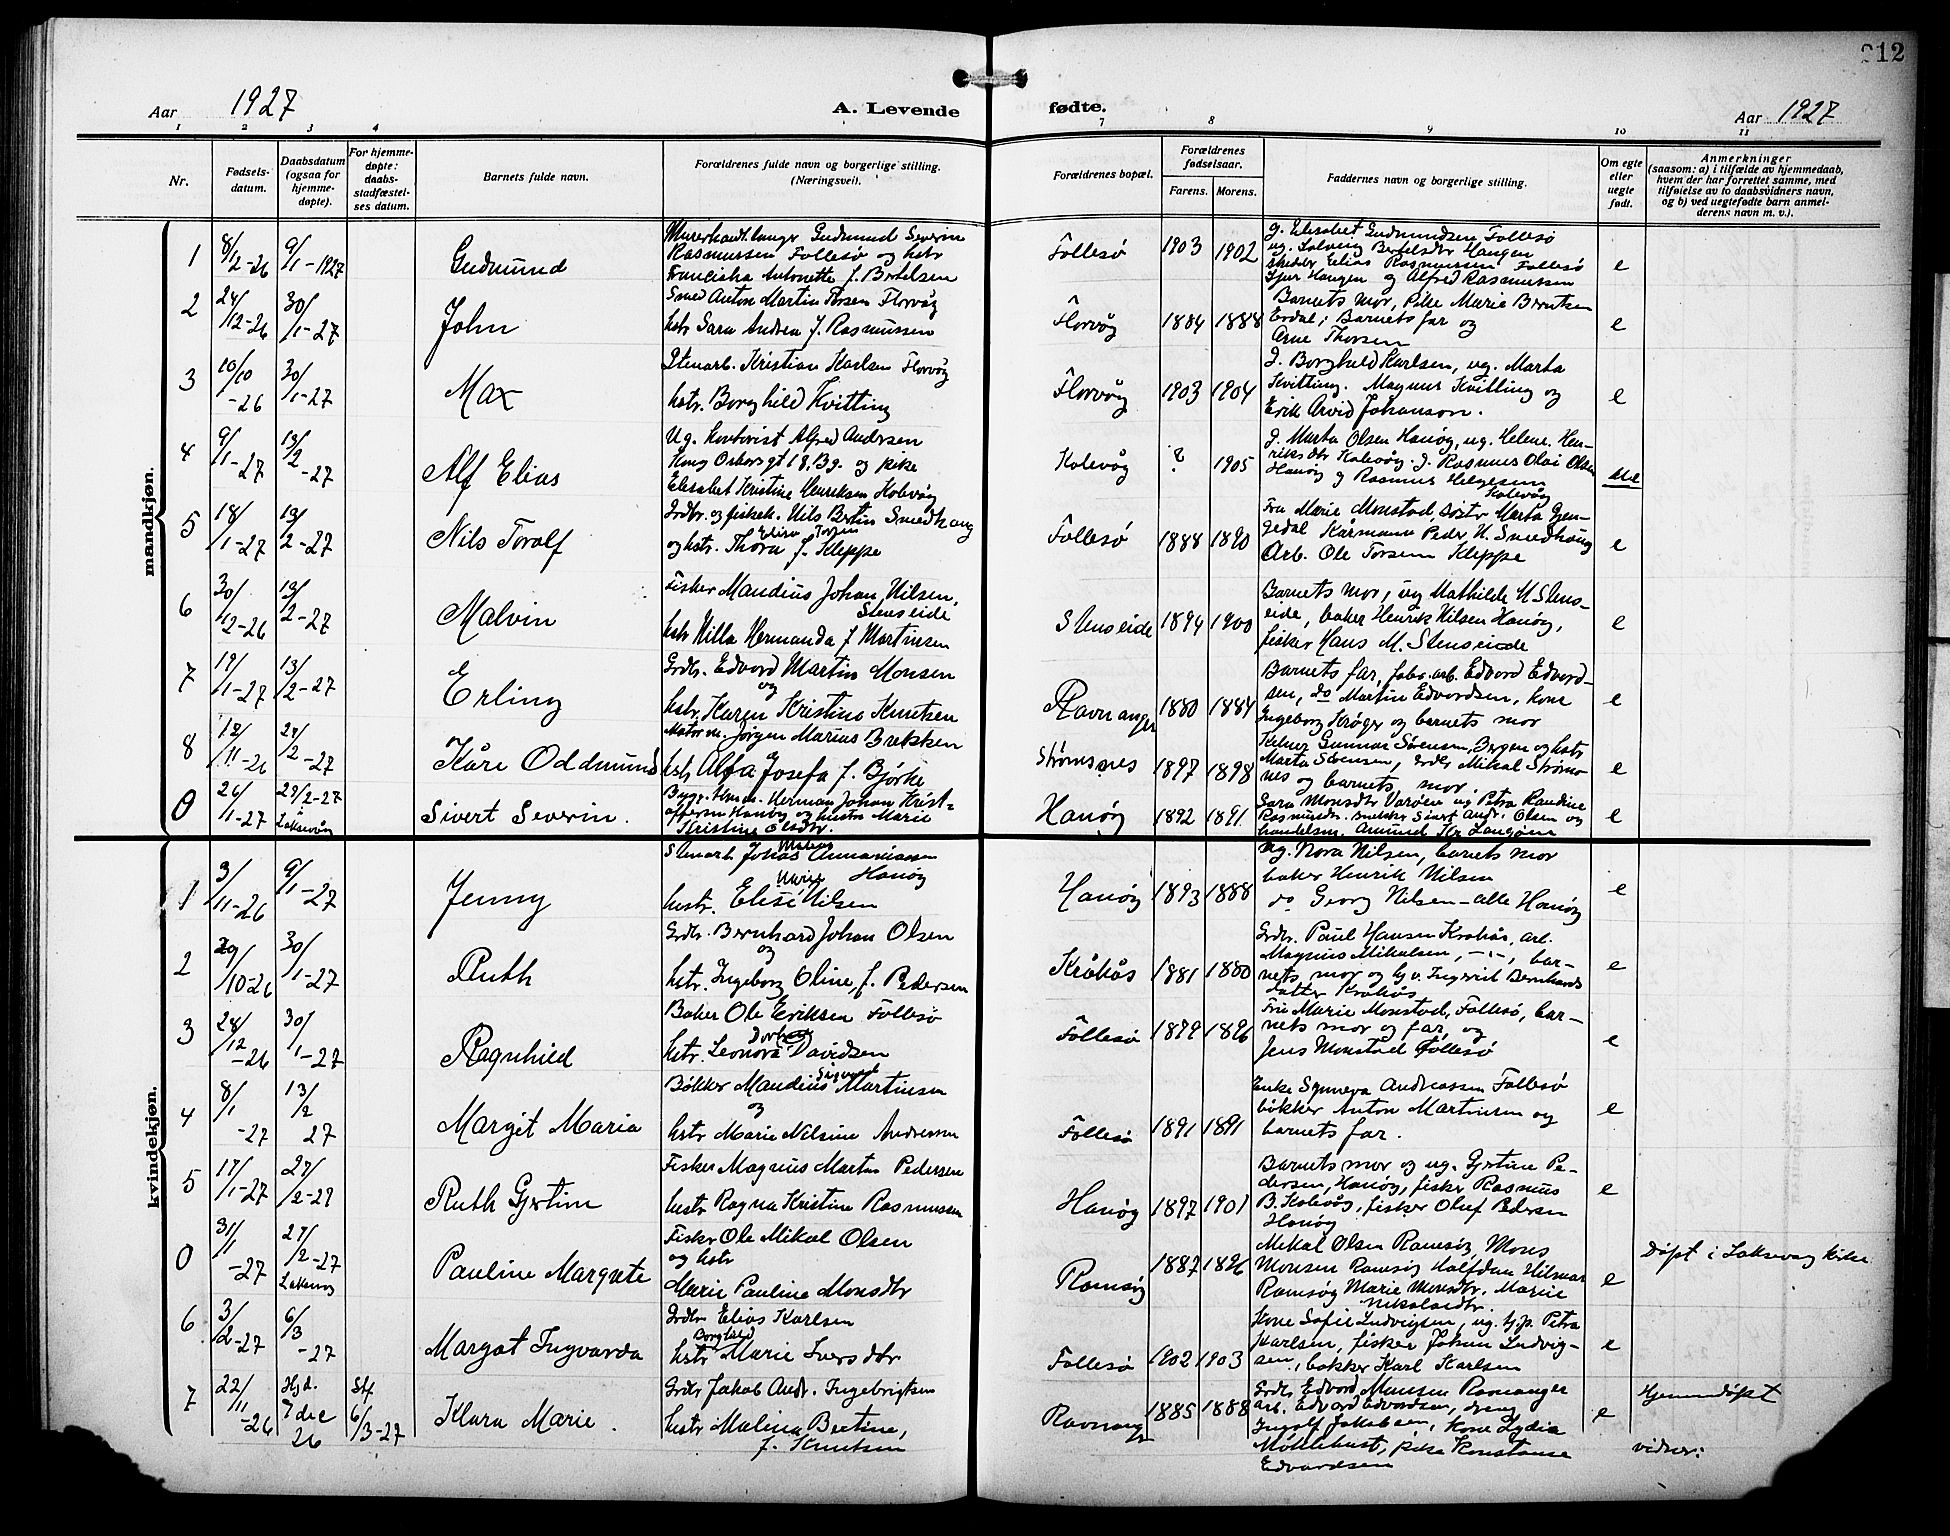 212
Aar 1927
A. Levende
fødte.
Aar 1927
1 2 3 4 7 8 9 10 11
Nr.
Fødsels-
datum.
Daabsdatum
(ogsaa for
hjemme-
døpte).
For hjemme-
døpte:
daabs-
stadfæstel-
ses datum.
Barnets fulde navn.
Forældrenes fulde navn og borgerlige stilling.
(Næringsvei).
Forældrenes bopæl.
Forældrenes
fødselsaar.
Farens. Morens.
Faddernes navn og borgerlige stilling.
Om egte
eller
uegte
født.
Anmerkninger
(saasom: a) i tilfælde av hjemmedaab,
hvem der har forrettet samme, med
tilføielse av to daabsvidners navn,
og b) ved uegtefødte barn anmel-
derens navn m. v.).
mandkjøn.
1 8/12-26 9/1-1927 Gudmund
Murerhandtlanger Gudmund Severin
Rasmussen Follesø og hstr
Franciska Antonette f. Bertelsen
Follesø 1903 1902
g. Elisabet Gudmundsen Follesø
ug. Solveig Bertelsdtr Haugen
Elias Rasmussen Follesø
Haugen og Alfred Rasmussen
e
2 24/12-26 30/1-27 John
Smed Anton Martin Torsen Florvåg
hstr Sara Andrea f. Rasmussen
Florvåg 1884 1888
Barnets mor, Pike Marie Berntsen
Erdal; Barnets far og
Arne Thorsen
e
3 10/10-26 30/1-27 Max
Stenarb. Kristian Karlsen Florvåg
hstr. Borghild Kvitting
Florvåg 1903 1904
g. Borghild Karlsen, ug. Marta
Kvitting. Magnus Kvitting og
Erik Arvid Johanson.
e
4 9/1-27 13/2-27 Alf Elias
Ug. Kontorist Alfred Andersen
Kong Oscarsgt 18. Bg. og pike
Elisabet Kristine Henriksen Kolevåg
Kolevåg ? 1905
g. Marta Olsen Hanøy, ug. Helene Hen-
riksdtr Kolevåg. g. Rasmus Olai Olsen
Hanøy g Rasmus Helgesen
Kolevåg
ue
5 18/1-27 13/2-27 Nils Toralf
Grdbr. og fiskeh. Nils Bertin Smedhaug
Elise Torsen
og hstr. Thora f. Kleppe
Follesø 1888 1890
Fru Marie Monstad, søstr Marta Gjen-
gedal Kårmann Peder N. Smedhaug
Arb. Ole Torsen Kleppe
e
6 30/12-26 13/2-27 Malvin
Fisker Mandius Johan Nilsen,
Stenseide
hstr Nilla Hermanda f Martinsen
Stenseide 1894 1900
Barnets mor, ug Mathilde M Stens-
eide, baker Henrik Nilsen Hanøy,
fisker Hans M. Stenseide
e
7 19/1-27 13/2-27 Erling
Grdbr. Edvard Martin Monsen
og
hstr. Karen Kristine Knutsen
Ravnanger 1880 1884
Barnets far, fabr. arb. Edvord Edvord-
sen, do Martin Edvordsen, kone
Ingeborg Krøger og barnets mor
e
8 12/11-26 27/2-27 Kåre Oddmund
Motorm. Jørgen Marius Brekken
hstr Alfa Josefa f. Bjørke
Strømsnes 1897 1898
Kelner Gunnar Sørensen, Bergen og hstr
Marta Sørensen, grdbr Mikal Strøms-
nes og barnets mor.
e
0 26/1-27 27/2-27 Laksevåg Sivert Severin.
Herman Johan Krist-
offersen Hanøy og hustru Marie
Kristine Olsdtr.
Hanøy 1892 1891
Sara Monsdtr Varøen ug Petra Randine
Rasmusdtr. snekker Sivert Andr. Olsen og
handelsm. Amund Kr Langøen
e
kvindekjøn.
1 3/11-26 9/1-27 Jenny
Stenarb Johas Annaniassen
Hanøy
Marie
hustr. Elise Nilsen
Hanøy 1893 1888
ug. Nora Nilsen, barnets mor
baker Henrik Nilsen
do Georg Nilsen - alle Hanøy
e
2 29/10-26 30/1-27 Ruth
Grdbr. Bernhard Johan Olsen
og
hstr. Ingeborg Oline, f. Pedersen
Kråkås 1881 1880
Grdbr. Paul Hansen Krokås, arb.
Magnus Mikalsen, -"-, bar-
nets mor og Ingerid Bernhards
datter Krokås
e
3 28/12-26 30/1-27 Ragnhild
Baker Ole Eriksen Follesø
hstr. Leonora Davidsen
Follesø 1899 1896
Fru Marie Monstad, Follesø, bar-
nets mor og far, og
Jens Monstad Follesø
e
4 8/1-27 13/2 27 Margit Maria
Sigvard
Bøkker Mandius Martinsen
og
hstr Marie Nilsine Andressen
Follesø 1891 1891
Enke Synneva Andreassen Follesø
bøkker Anton Martinsen og
barnets far.
e
5 17/1-27 27/2-27 Ruth Gjertine
Fisker Magnus Martin Pedersen
hustr Ragna Kristine Rasmussen
Hanøy 1897 1901
Barnets mor og ug. Gjertine Pe-
dersen, Hanøy, fisker Rasmus
B. Kolevåg, fisker Oluf Pedersen
Hanøy
e
0 31/1-27 27/2-27 Laksevåg Pauline Margrete
Fisker Ole Mikal Olsen
og hstr
Marie Pauline Monsdtr
Ramsøy 1887 1896
Mikal Olsen Ramsøy, Mons
Monsen Ramsøy Halfdan Hilmar
Ramsøy Marie Monsdtr. Marie
Nikolaidtr.
e
Døpt i Laksevåg kirke
6 3/2-27 6/3-27 Margot Ingvarda
Grdbr Elias Karlsen
Borghild
hstr Marie Iversdtr
Follesø 1902 1903
Kone Sofie Ludvigsen, ug. Petra
Karlsen, fisker Johan Ludvig-
sen, bøkker Karl Karlsen
e
7 22/11-26 Hjd. 7 dec 26 Stf 6/3-27 Klara Marie.
Grdbr Jakob Andr. Ingebrigtsen
hustr Malina Bertine,
f. Knutsen
Ravnanger 1885 1888
Grdbr Edvard Monsen Ravnanger
arb. Edvard Edvardsen, dreng
Ingolf Jakobsen, Kone Lydia
Møklebust, pike Konstanse
Edvardsen
e
Hjemmedøpt
vidner: